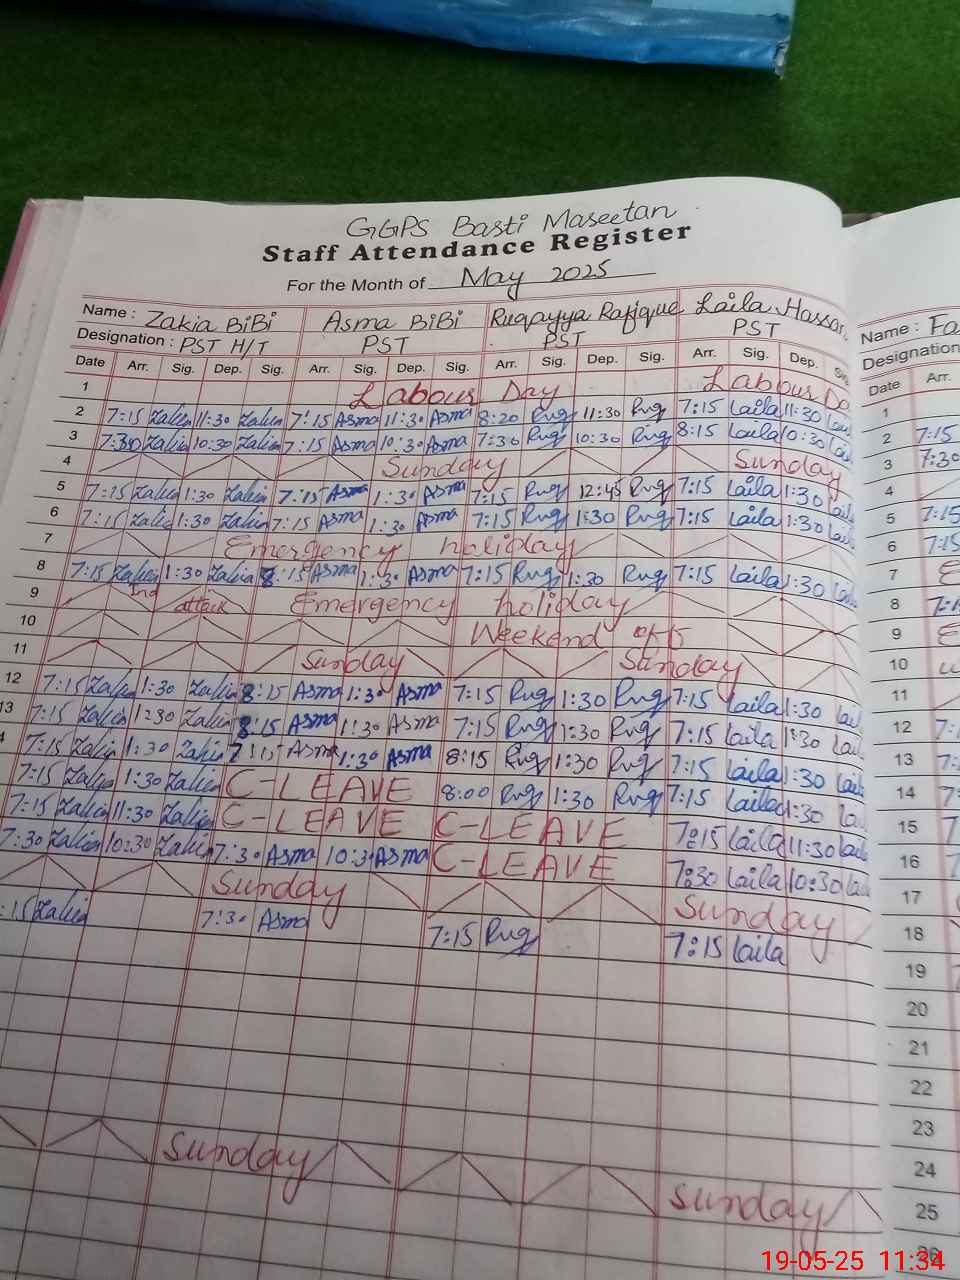 GGPS Basti Maseetan
Staff Attendance Register
For the Month of May 2025
Name : Zakia BiBi Asma BiBi Ruqayya Rafique Laila Hassan Name : Fa
Designation : PST H/T PST PST PST Designation
Date Arr. Sig. Dep. Sig. Arr. Sig. Dep. Sig. Arr. Sig. Dep. Sig. Arr. Sig. Dep. Date Arr.
1 Labour Day Labour Da 1
2 7:15 Zakia 11:30 Zakia 7:15 Asma 11:30 Asma 8:20 Ruq 11:30 Ruq 7:15 Laila 11:30 Lai 2 7:15
3 7:30 Zakia 10:30 Zakia 7:15 Asma 10:30 Asma 7:30 Ruq 10:30 Ruq 8:15 Laila 10:30 Lai 3 7:30
4 Sunday Sunday 4
5 7:15 Zakia 1:30 Zakia 7:15 Asma 1:30 Asma 7:15 Ruq 12:45 Ruq 7:15 Laila 1:30 Lail 5 7:15
6 7:15 Zakia 1:30 Zakia 7:15 Asma 1:30 Asma 7:15 Ruq 1:30 Ruq 7:15 Laila 1:30 Lail 6 7:15
7 Emergency holiday 7 E
8 7:15 Zakia 1:30 Zakia 8:15 Asma 1:30 Asma 7:15 Ruq 1:30 Ruq 7:15 Laila 1:30 Lail 8 7:1
9 Ind attack Emergency holiday 9 E
10 Weekend off 10 w
11 Sunday Sunday 11
12 7:15 Zakia 1:30 Zakia 8:15 Asma 1:30 Asma 7:15 Ruq 1:30 Ruq 7:15 Laila 1:30 Lail 12 7:1
13 7:15 Zakia 1:30 Zakia 8:15 Asma 1:30 Asma 7:15 Ruq 1:30 Ruq 7:15 Laila 1:30 Lai 13 7:
4 7:15 Zakia 1:30 Zakia 7:15 Asma 1:30 Asma 8:15 Ruq 1:30 Ruq 7:15 Laila 1:30 Lail 14 7
7:15 Zakia 1:30 Zakia C-LEAVE 8:00 Ruq 1:30 Ruq 7:15 Laila 1:30 La 15
7:15 Zakia 11:30 Zakia C-LEAVE C-LEAVE 7:15 Laila 11:30 Laila 16
7:30 Zakia 10:30 Zakia 7:30 Asma 10:30 Asma C-LEAVE 7:30 Laila 10:30 La 17
Sunday Sunday 18
:15 Zakia 7:30 Asma 7:15 Ruq 7:15 Laila 19
20
21
22
23
24
Sunday Sunday 25
26
19-05-25 11:34